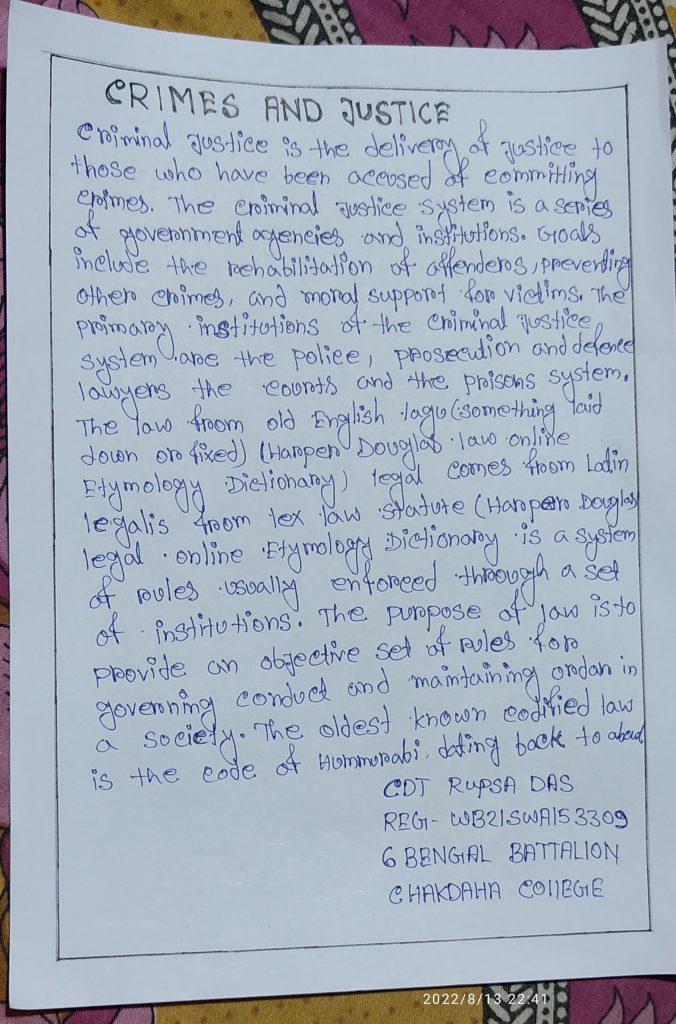 CRIMES AND JUSTICE
Criminal Justice is the delivery of Justice to
those who have been accused of committing
crimes. The criminal Justice system is a series
of government agencies and institutions. Goals
include the rehabilitation of offenders, preventing
other crimes, and moral support for victims. The
primary institutions of the criminal Justice
system are the police, prosecution and defence
lawyers the courts and the prisons system.
The law from old English lagu (something laid
down or fixed) (Harper Douglas law online
Etymology Dictionary) legal comes from Latin
legalis from lex law statute (Harper Douglas
legal online Etymology Dictionary is a system
of rules usually enforced through a set
of institutions. The purpose of law is to
provide an objective set of rules for
governing conduct and maintaining ordan in
a society. The oldest known codified law
is the code of Hommurabi, dating back to about
CDT RUPSA DAS
REG- WB21SWA153309
6 BENGAL BATTALION
CHAKDAHA COllEGE
2022/8/13 22:41